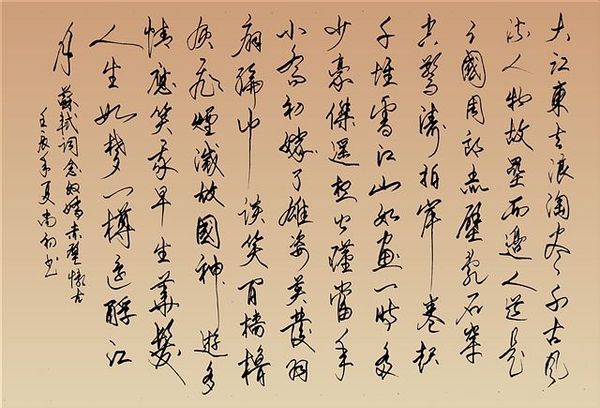 大江東去浪淘盡千古風
流人物故壘西邊人道是
三國周郎赤壁亂石穿
空驚濤拍岸卷起
千堆雪江山如畫一時多
少豪傑遙想公瑾當年
小喬初嫁了雄姿英發羽
扇綸巾談笑間檣櫓
灰飛煙滅故國神遊多
情應笑我早生華髮
人生如夢一樽還酹江
月
蘇軾詞念奴嬌赤壁懷古
壬辰年夏尚書